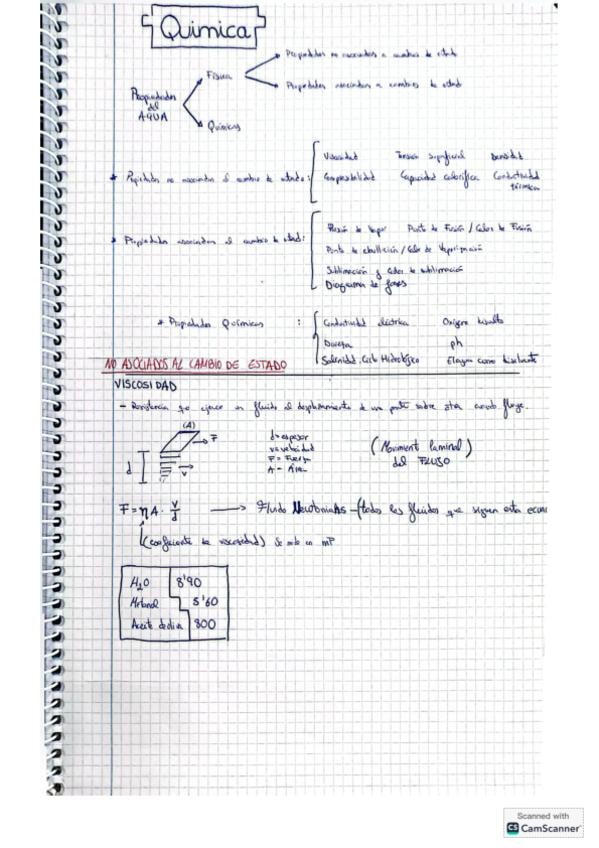 Quimica
Propiedades no asociadas a cambio de estado
Física
Propiedades asociadas a cambios de estado
Propiedades
del
AGUA
Químicas
Viscosidad Tensión superficial Densidad
* Propiedades no asociadas al cambio de estado: Compresibilidad Capacidad calorífica Conductividad
térmica
Presión de Vapor Punto de Fusión / Calor de Fusión
* Propiedades asociadas al cambio de estad: Punto de ebullición / Calor de Vaporización
Sublimación y Calor de sublimación
Diagrama de fases
* Propiedades Químicas : Conductividad eléctrica Oxígeno disuelto
Dureza ph
Salinidad. Ciclo Hidrológico El agua como disolvente
NO ASOCIADOS AL CAMBIO DE ESTADO
VISCOSIDAD
- Resistencia que ejerce un fluido al desplazamiento de una parte sobre otra cuando fluye.
(A)
F
d = espesor
v = velocidad
F = Fuerza
A = Área
d
v
(Moviment laminal)
del FLUJO
F = ηA · v/d → Fluido Newtonianos - (todos los fluidos que siguen esta ecua
(coeficiente de viscosidad) Se mide en mP
H2O 8'90
Metanol 5'60
Aceite de oliva 800
Scanned with
CS CamScanner